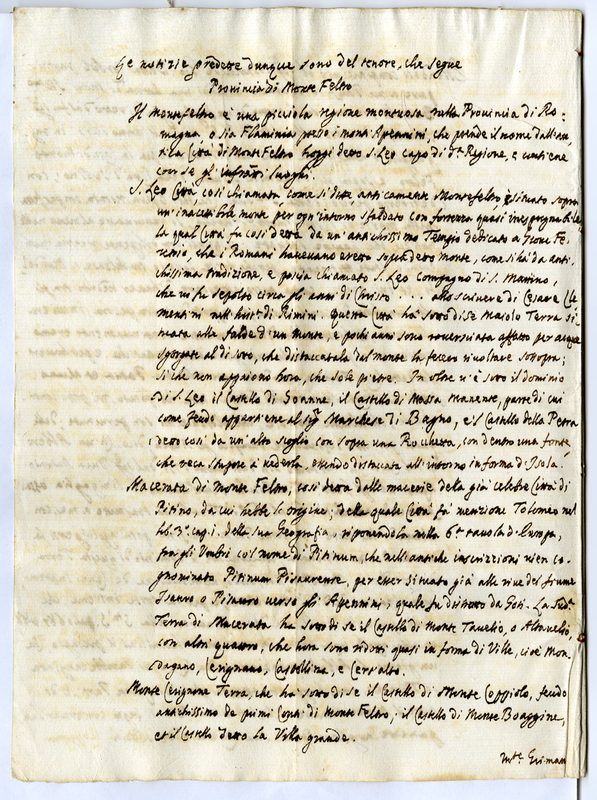 Le notizie predette dunque sono del tenore, che segue
Provincia di Monte Feltro
Il Montefeltro è una picciola regione montuosa nella Provincia di Ro=
magna, o sia Flaminia presso i monti Apennini, che prende il nome dall'an=
tica Città di Monte Feltro hoggi detto S. Leo capo di d.ª Regione, e contiene
con se gl'infratti luoghi.
S. Leo Città, così chiamata, come si dite anticamente Montefeltro, è situato sopra
un'inaccessibile monte per ogn'intorno sfaldato con fortezza quasi inespugnabile,
la qual Città fu così detta da un antichissimo Tempio dedicato a Giove Fe=
retrio, che i Romani havevano eretto sop.ª detto monte, come si hà da anti=
chissima tradizione, e poscia chiamato S. Leo compagno di S. Marino,
che vi fu sepolto circa gli anni di Christo . . . . allo scrivere di Cesare Cle
mentini nell'hist.ª di Rimini. Questa Città ha sotto di se Maiolo Terra si=
tuata alle falde d'un monte, e pochi anni sono roversciata affatto per acque
sgorgate al di sotto, che distaccatala dal monte la fecero rivoltare sossopra;
si che non appaiono hora, che sole pietre. In oltre v'è sotto il dominio
di S. Leo il Castello di Soanne, il Castello di Massa Manente, parte di cui
come feudo appartiene al sig.r Marchese di Bagno, e'l Castello della Petra
detto così da un alto scoglio con sopra una Rocchetta, con dentro una fonte,
che reca stupore a vederla, essendo distaccata all'intorno in forma d'Isola.
Macerata di Monte Feltro, così detta dalle macerie della già celebre Città di
Pitino, da cui hebbe l'origine; della quale Città fa menzione Tolomeo nel
lib. 3º cap. 1. della sua Geografia, riponendola nella 6ª tavola d'Europa,
fra gli Umbri col nome di Pitinum, che nell'antiche inscrizzioni vien co=
gnominato Pitinum Pisaurense, per esser situato già alle rive del fiume
Isauro o Pisauro verso gli Apennini; quale fu distrutto da Goti. La sud.ª
Terra di Macerata ha sotto di se il Castello di Monte Tavelio, o Altavelio,
con altri quattro, che hora sono ridotti quasi in forma di Ville, cioè Mon
dagano, Cerignano, Castellina, e Cervalto.
Monte Cerignone Terra, che ha sotto di se il Castello di Monte Coppiolo, feudo
antichissimo de primi Conti di Monte Feltro; il Castello di Monte Boaggine,
et il Castello detto la Villa grande.
M.te Grimano